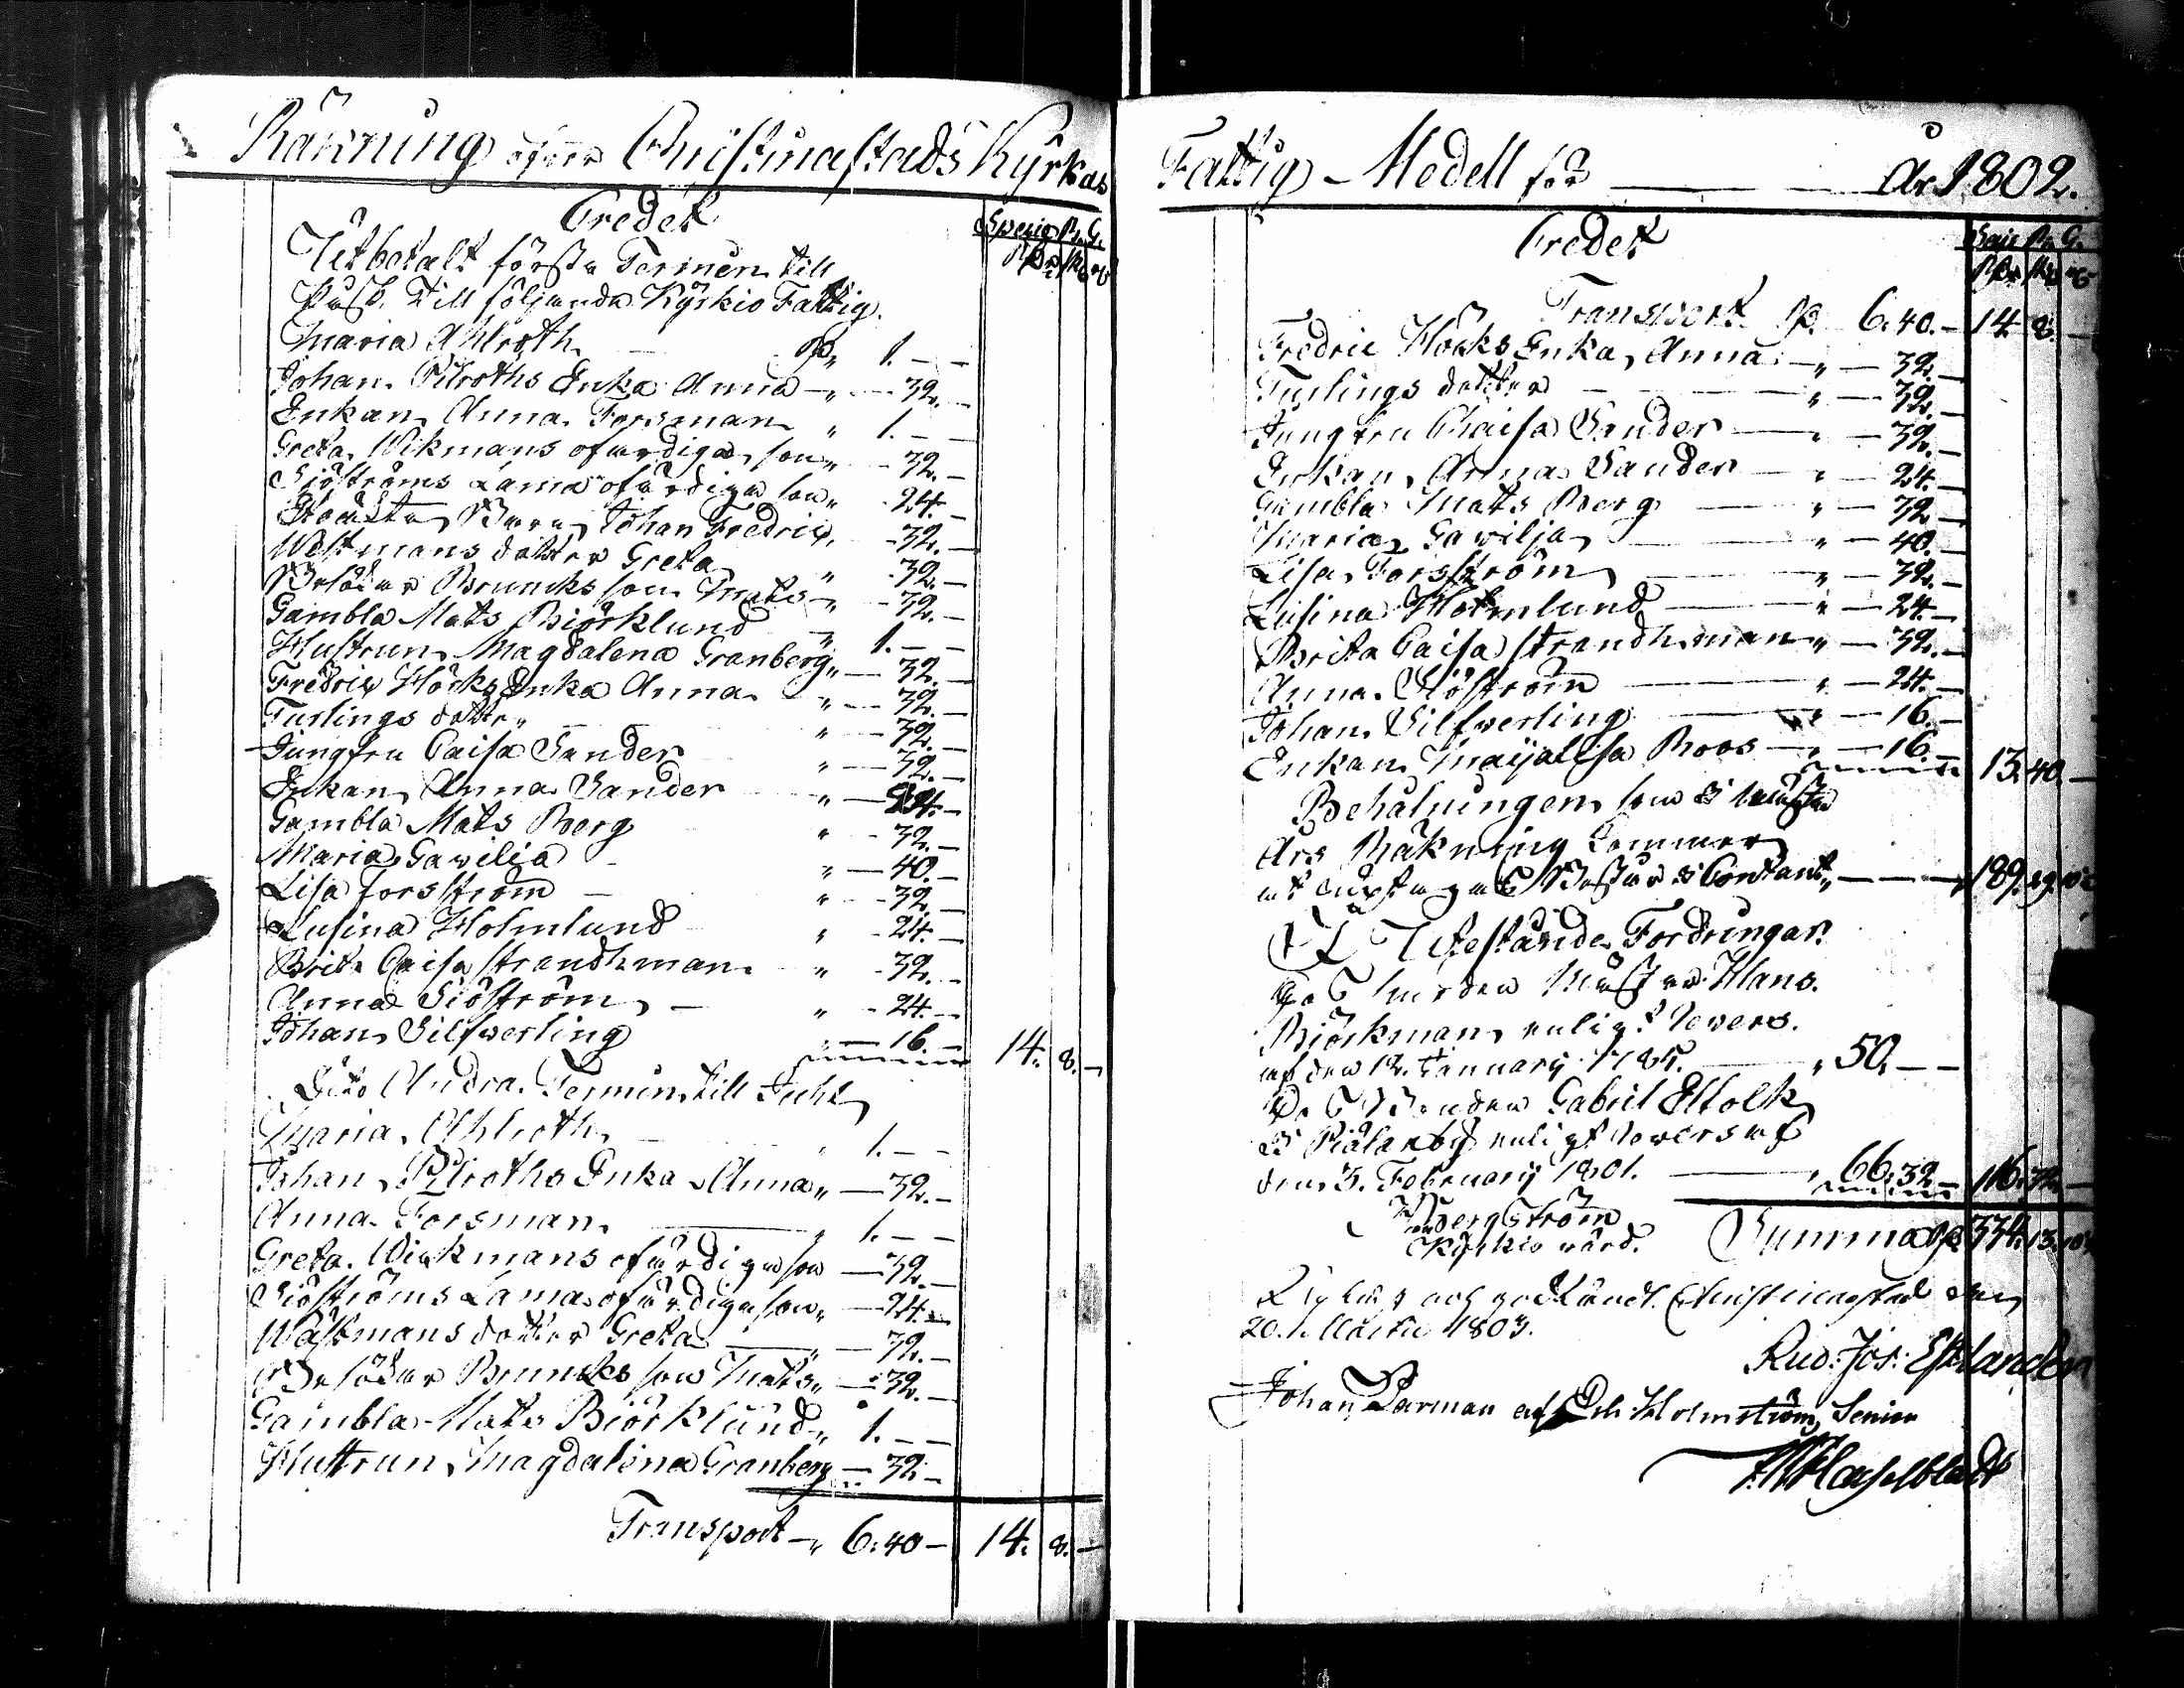 Räkning öfver Christinæstads Kyrkas
Credit
Specie Rr. G.
Rdr sk rs
Utbetalt första Terminen till
Påsk. Till följande Kyrkio Fattig.
Maria Ahlroth Rdr „ 1. – –
Johan Pilroths Enka Anna – „ – 32. –
Enkan Anna Forsman „ 1. – –
Greta Wikmans ofärdiga son „ – 32. –
Siöströms Lama ofärdiga son „ – 24. –
Barn Johan Fredric, – 32. –
Westmans dotter Greta „ – 32. –
Bruncks son Mats – „ – 32. –
Gambla Mats Biörklund „ 1. – –
Hustrun Magdalena Granberg „ – 32. –
Fredric Höcks Enka Anna „ – 32. –
Turlings dotter „ – 32. –
Jungfru Caisa Sander „ – 32. –
Enkan Anna Sander „ – 24. –
Gambla Mats Berg „ – 32. –
Maria Gavilia „ – 40. –
Lisa Forsström „ – 32. –
Lusina Holmlund „ – 24. –
Brita Caisa Strandhman „ – 32. –
Anna Siöström – „ – 24. –
Johan Silfwerling „ – 16. – 14. 8. –
Dito Andra Termin till Juhl
Maria Ahlroth „ 1. – –
Johan Pilroths Enka Anna „ – 32. –
Anna Forsman „ 1. – –
Greta Wickmans ofärdiga son – 32. –
Siöströms Lama ofärdiga son „ – 24. –
Wästmans dotter Greta „ – 32. –
Bruncks son Mats „ – 32. –
Gambla Mats Biörklund „ 1. – –
Hustrun Magdalena Granberg – 32. –
Transport – „ 6. 40 – 14. 8. –
Fattig-Medell för År 1802.
Credit
Transport Rdr 6. 40. – 14. 8. –
Fredric Höcks Enka, Anna – „ – 32. –
Turlings dotter – „ – 32. –
Jungfru Chaisa Sander – „ – 32. –
Enkan Anna Sander – „ – 24. –
Gambla Mats Berg – „ – 32. –
Maria Gavilja – „ – 40. –
Lisa Forsström – „ – 32. –
Lusina Holmlund – „ – 24. –
Brita Caisa Strandhman „ – 32. –
Anna Siöström – „ – 24. –
Johan Silfwerling – „ – 16. –
Enkan Maijalisa Roos – „ – 16. – 13. 40. –
Behålningen som i nästa
Års Räkning kommer
at uptagas i Contant „ – 189. 29.
Utestående Fordringar.
Hans
Biörkman enligt Revers
af den 12. January 1785. „ 50. – –
Gabriel Elfolk
i enligt Revers af
den 3. February 1801. „ 66. 32 – 116. 32. –
Bergström
Kyrkio värd. Summa Rdr 334. 13.
och godkändt. Christinæstad den
20. Martii 1803.
Rud: Jos: Estlander
Johan Parman Er: Holmström, Senior
Hasselbladt